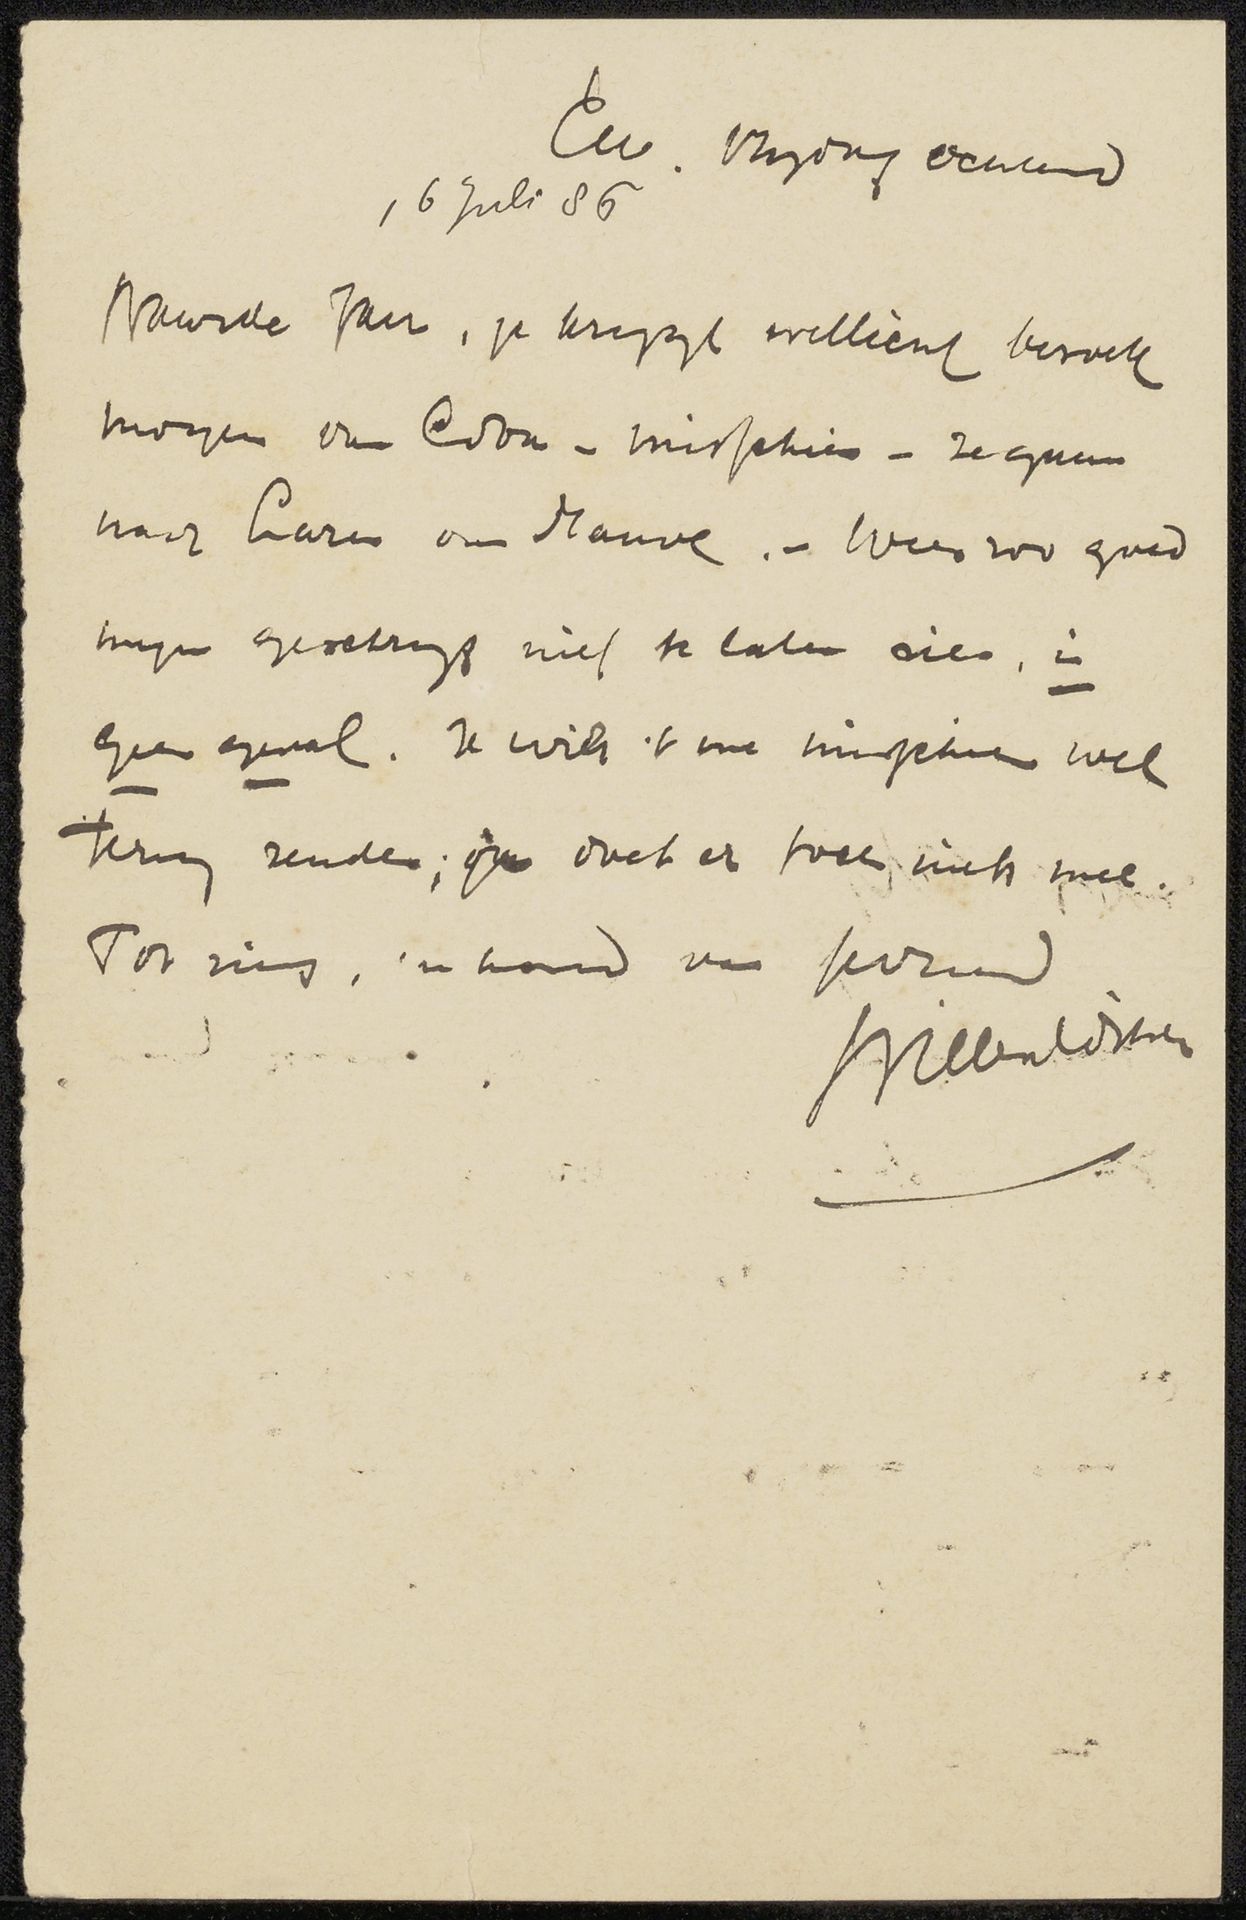 Ede. Vrijdag ochtend
16 Juli 86
Waarde Jan, je krijgt wellicht bezoek
morgen van - misschien - ze gaan
naar Laren om Mauve. - Wees zoo goed
mijn geschrijf niet te laten zien, in
geen geval. Je wilt 't me misschien wel
terug zenden; doet er toch niets mee.
Tot ziens, 'n hand van
Willem Witsen